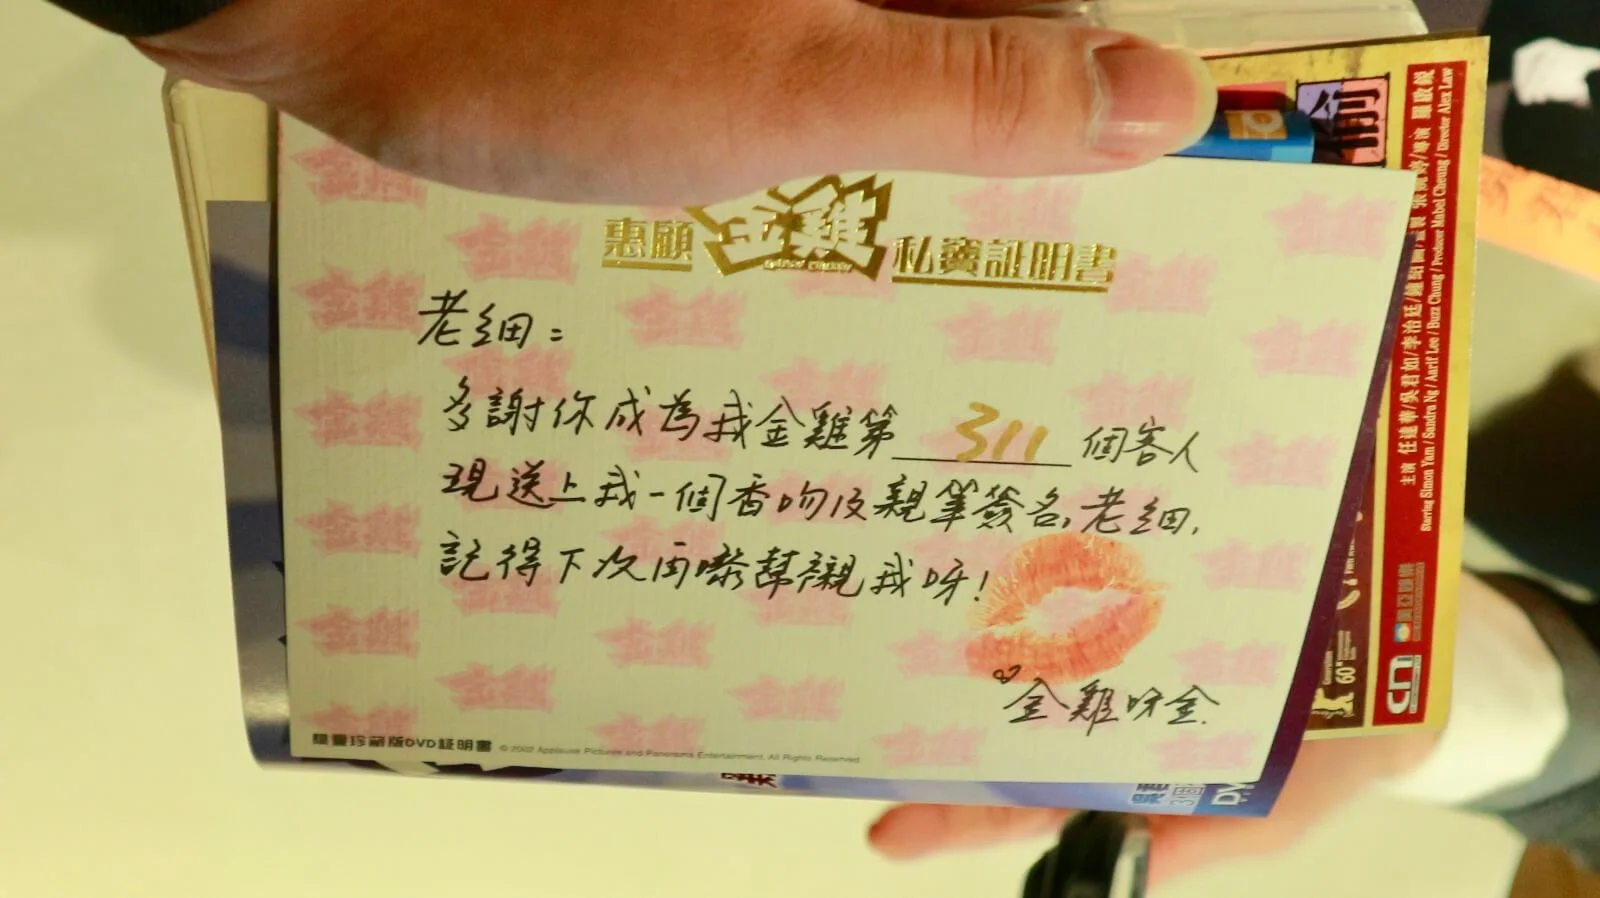 惠顧 金雞 私竇証明書
老細：
多謝你成為我金雞第 311 個客人
現送上我一個香吻及親筆簽名,老細,
記得下次再嚟幫襯我呀!
金雞呀金.
限量珍藏版DVD証明書 © 2002 Applause Pictures and Panorama Entertainment. All Rights Reserved
偷
主演 任達華/吳君如/李治廷/鍾紹圖/監製 張婉婷/導演 羅啟銳
Starring Simon Yam / Sandra Ng / Aarif Lee / Buzz Chung / Producer Mabel Cheung / Director Alex Law
美亞娛樂